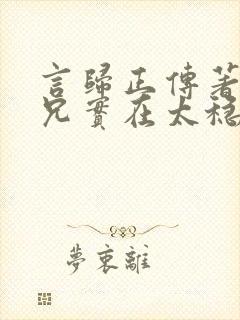 言歸正傳著
兄實在太稳
夢衷離